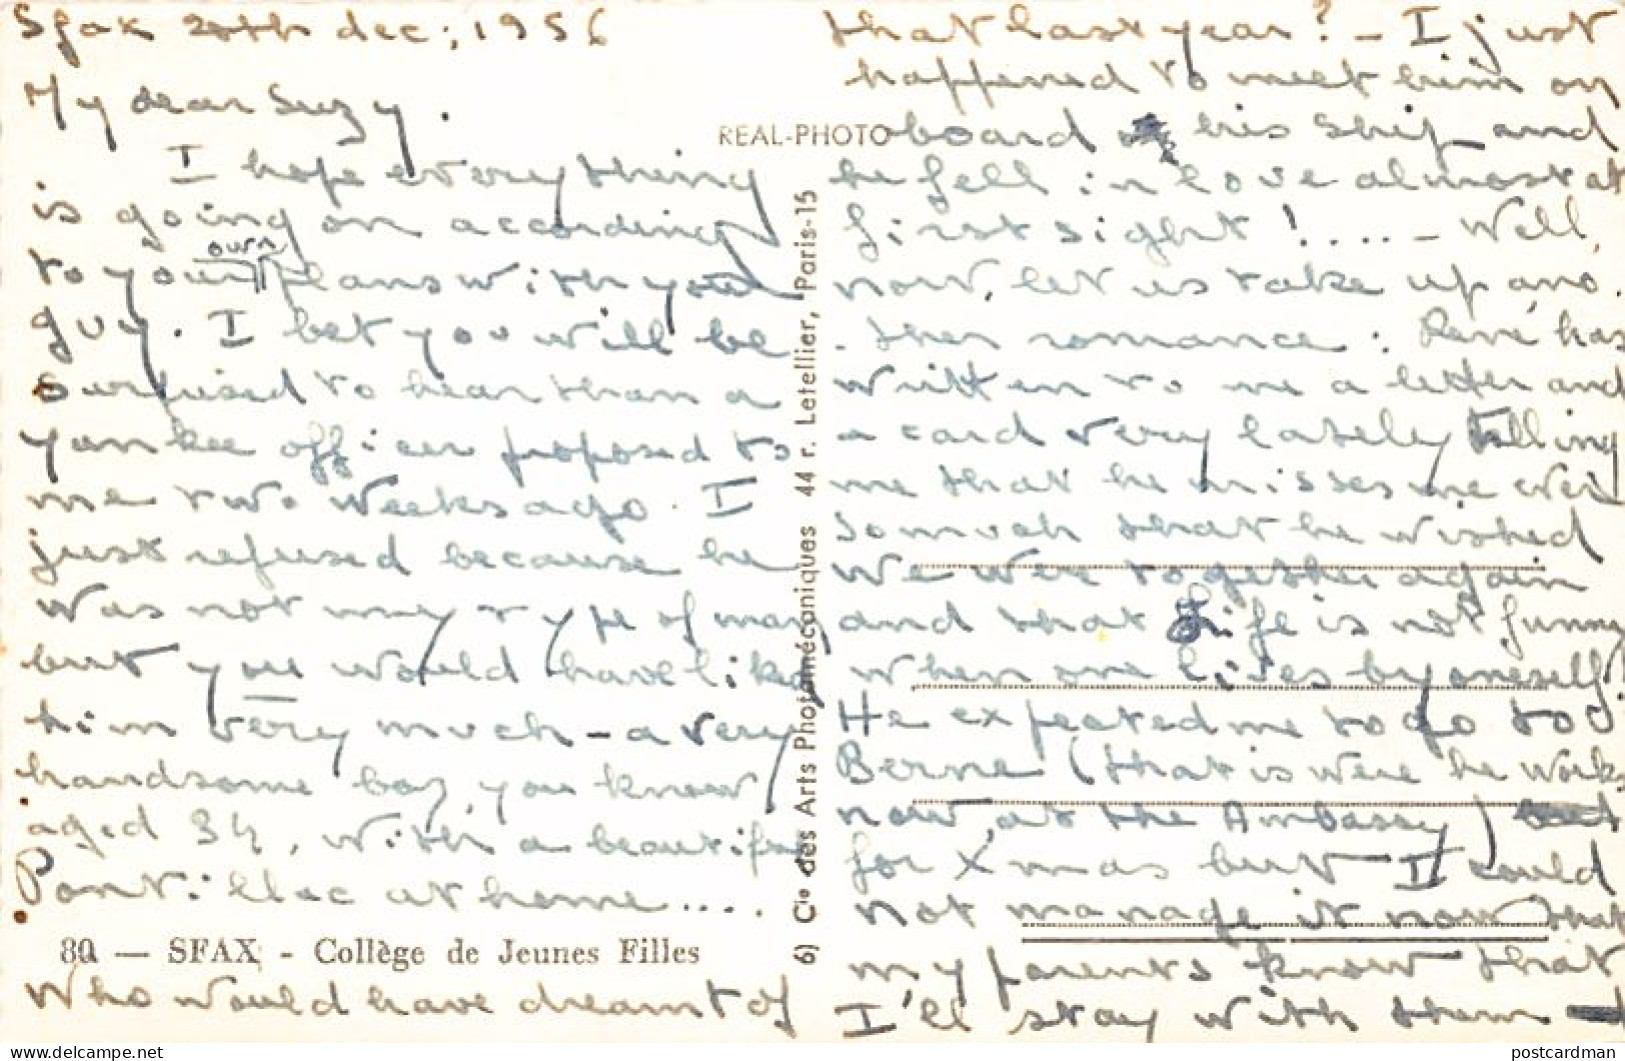 Sfax 20th dec; 1956
My dear Suzy.
I hope everything
is going on according
to your own plans with your
guy. I bet you will be
surfused to hear than a
yankee officer proposed to
me two weeks ago. I
just refused because he
was not my type of man,
but you would have liked
him very much - a very
handsome boy, you know,
aged 34, with a beautiful
Pontillac at home....
80 — SFAX - Collège de Jeunes Filles
Who would have dreamt of
REAL-PHOTO
6) Cie des Arts Photomécaniques 44 r. Letellier, Paris-15
that last year? - I just
happened to meet him on
board his ship and
he fell in love almost at
first sight!....- Well,
now, let us take up ano.
.ther romance: René has
written to me a letter and
a card very lately telling
me that he misses me ever
so much that he wished
we were together again
and that life is not funny
when one lives by oneself!
He expected me to go to
Berne (that is were he works
now, at the Ambassy)
for Xmas but I could
not manage it now that
my parents know that
I'll stay with them
postcardman